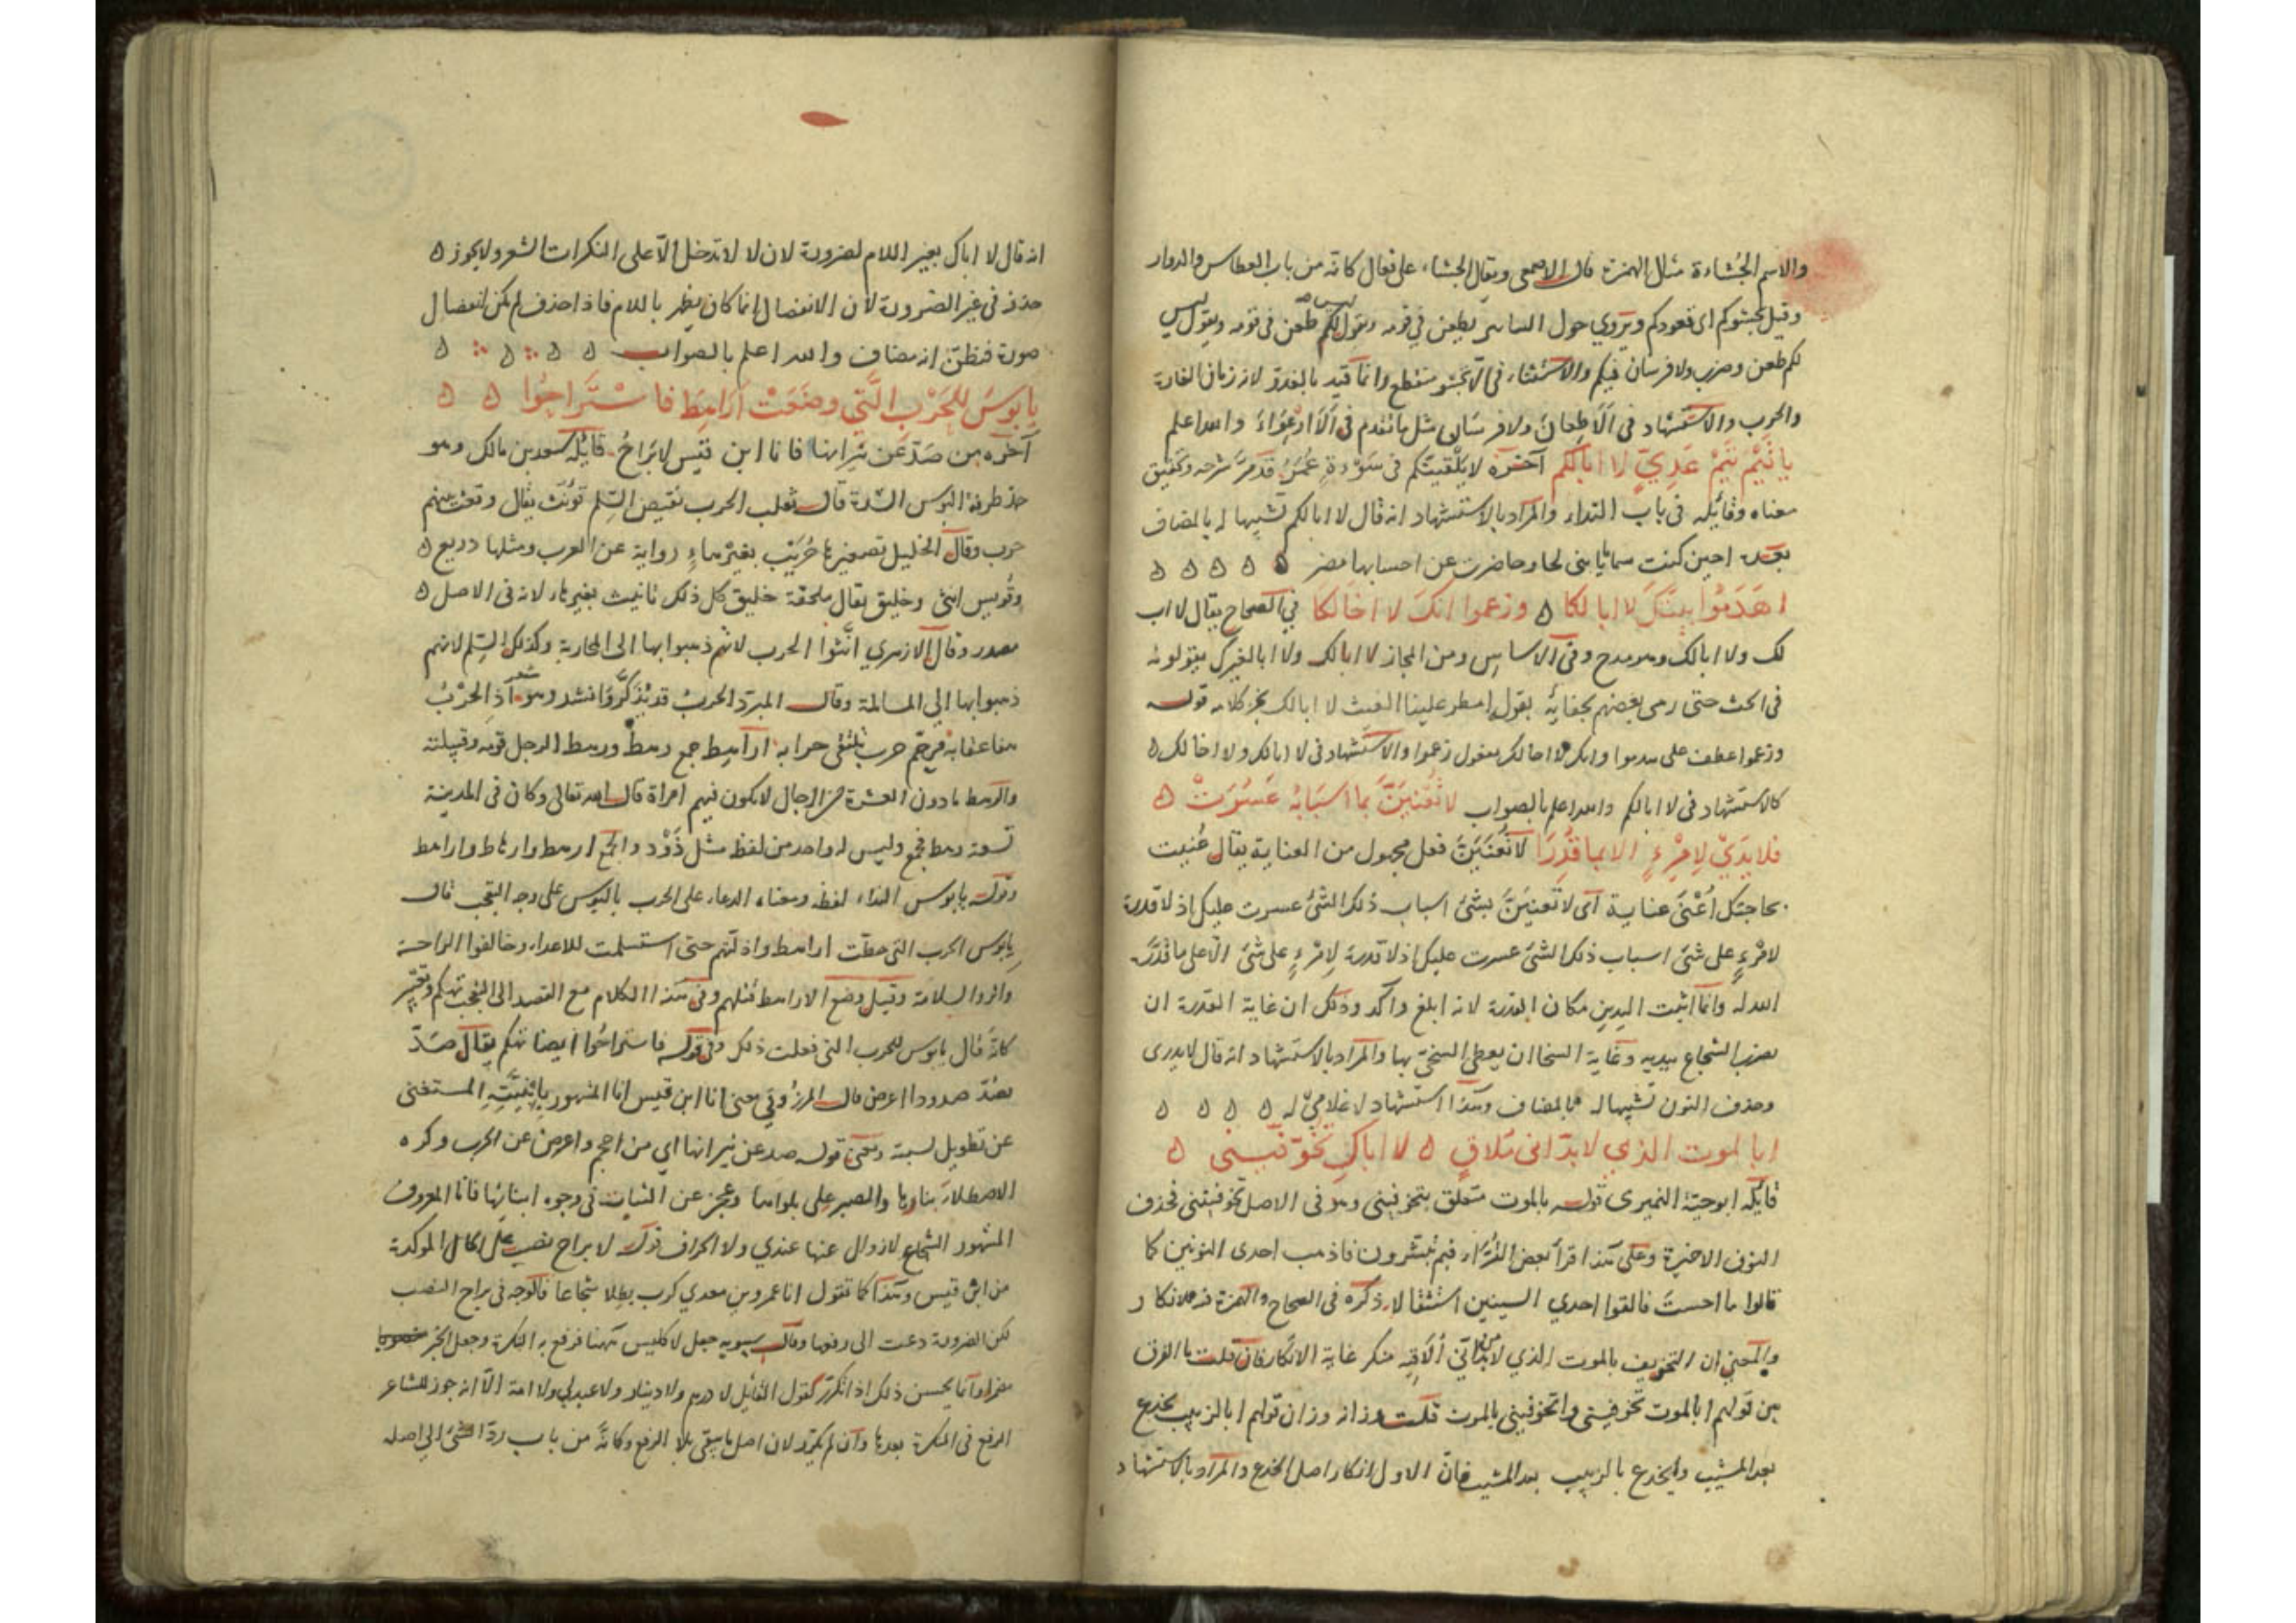 والاسم الجُشاءة مثال الهمزة قال الاصمعى ويقال الجشاء على فعال كانه من باب العطاس والدوار
وقيل تجشوكم اى قعودكم ويروي حول التنانير يطعن في قومه وتقول ليس لكم طعن فى قومه ويقول ليس
لكم طعن وضرب ولا فرسان فيكم والاستثناء فى الا تجشو منقطع وانما قيد بالغدو لانه زمان الغارة
والحرب والاستشهاد فى اَلَا طِعانَ ولا فرسان مثل ما تقدم فى اَلَا ارْعِوَاءَ والله اعلم
يا تَيْمُ تَيْمَ عَدِيٍّ لا ابا لكم آخره لا يلقينّكم فى سَوْءةٍ عُمَرُ قد مرّ شرحه وتحقيق
معناه وقائله فى باب النداء والمراد بالاستشهاد انه قال لا ابا لكم تشبيها له بالمضاف
بعده احين كنت سماما يا بنى لجا وخاطرت عن احسابها مضر ه ه ه ه ه
اهَدَمُوا بيتَكَ لا ابا لكا ه وزعموا انكَ لا اخا لكا في الصحاح يقال لا اب
لك ولا ابا لك وهو مدح وفى الاساس ومن المجاز لا ابا لك ولا ابا لغيرك يقولونه
فى الحث حتى رمى بعضهم بجفائه بقول امطر علينا الغيث لا ابا لك بجر كلامه قوله
وزعموا عطف على هدموا وانك لا اخا لك مفعول زعموا والاستشهاد فى لا ابا لك ولا اخا لك ه
كالاستشهاد فى لا ابا لكم والله اعلم بالصواب لا تُعْنَيَنَّ بما اسبَابُه عَسُرَتْ ه
فلا يدَيْ لِامْرِءٍ الا بما قُدِرَا لا تُعْنَيَنَّ فعل مجهول من العناية يقال عُنيت
بحاجتك اُعْنَى عناية اى لا تعنينّ بشئ اسباب ذلك الشئ عسرت عليك اذ لا قدرة
لامْرءٍ على شئ اسباب ذلك الشئ عسرت عليك اذ لا قدرة لِامْرءٍ على شئ الّا على ما قدّرَ
الله له وانما اثبت اليدين مكان القدرة لانه ابلغ واكد وذلك ان غاية القدرة ان
يضرب الشجاع بيديه وغاية السخا ان يعطى السخىّ بها والمراد بالاستشهاد انه قال لا يدى
وحذف النون تشبيها له بالمضاف وهذا استشهاد لا غلامي له ه ه ه ه
ابا لموت الذي لا بدّ انى مُلاقٍ ه لا اباكِ تُخَوّفينى ه
قائله ابو حيّة النميرى قوله بالموت متعلق بتخوفينى وهو فى الاصل تخوفيننى فحذف
النون الاخيرة وعلى هذا قرأ بعض القُرّاء فبم تبشرون فاذهب احدى النونين كما
قالوا ما احستَ فالقوا احدي السينين استثقالا ذكره فى الصحاح والهمزة فيه للانكار
والمعنى ان التخويف بالموت الذي لا بدّ من انّي اُلَاقِيه منكر غاية الانكار فان قلت ما الفرق
بين قولهم ابالموت تخوفينى واتخوفينى بالموت قلت وزانه وزان قولهم ابالزبيب يخدع
بعد المشيب وايخدع بالزبيب بعد المشيب فان الاول انكار اصل الخدع والمراد بالاستشهاد
انه قال لا اباك بغير اللام لضرورة لان لا لا تدخل الّا على النكرات الشعر ولا يجوز ه
حذفه فى غير الضرورة لان الانفصال انما كان يظهر باللام فاذا حذف لم يكن انفصال
صورة فنظنّ انه مضاف والله اعلم بالصواب ه ه ه ه
يا بُوسَ للحَرْبِ الَّتي وضَعَتْ اَرَاهِطَ فاسْتَراحُوا ه ه
آخره من صَدَّ عن نيرانها فانا ابن قيس لا بَرَاحُ قائله سعد بن مالك وهو
جد طرفة البوس الشدة قال ثعلب الحرب نقيض السِّلم تؤنّث يقال وقعت بينهم
حرب وقال الخليل تصغيرها حُرَيْب بغير هاءٍ رواية عن العرب ومثلها دريع ه
وقُويس انثى وخليق يقال ملحفة خليق كل ذلك تانيث بغير هاء لانه فى الاصل ه
مصدر وقال الازهري انّثوا الحرب لانهم ذهبوا بها الى المحاربة وكذلك السِّلم لانهم
ذهبوا بها الي المسالمة وقال المبرّد الحربُ قد يُذكَّر وانشد وهو شعر اذِ الحَرْبُ
هفا عقابه مرجم حرب تلتقى حرابه اراهط جمع رهط ورهط الرجل قومه وقبيلته
والرهط ما دون العشرة من الرجال لا يكون فيهم امراة قال الله تعالى وكان فى المدينة
تسعة رهط فجمع وليس له واحد من لفظه مثل ذَوْد والجمع ارهط وارهاط واراهط
وقوله يا بوس النداء لفظه ومعناه الدعاء على الحرب بالبوس على وجه التعجب قال
يا بوس الحرب التى حطّت اراهط واذلّتهم حتى استسلمت للاعداء وخالفوا الراحة
واثروا السلامة وقيل وضع الاراهط قتلهم وفى هذا الكلام مع القصد الى التعجب تهكم وتعيير
كانه قال يا بوس للحرب التى فعلت ذلك وفى قوله فاستراحُوا ايضا تهكم يقال صَدّ
يصُدّ صدودا اعرض قال المرزوقي معنى انا ابن قيس انا المشهور بابيه المستغنى
عن تطويل نسبه ومعنى قوله صد عن نيرانها اي من احجم واعرض عن الحرب وكره
الاصطلاء بنارها والصبر على بلواها وعجز عن الثبات فى وجوه ابنائها فانا المعروف
المشهور الشجاع لا زوال عنها عندي ولا انحراف قوله لا براح نصب على الحال الموكدة
من ابن قيس وهذا كما تقول انا عمرو بن معدي كرب بطلا شجاعا فالوجه فى براح النصب
لكن الضرورة دعت الى رفعها وقال سيبويه جعل لا كليس ههنا فرفع به النكرة وجعل الخبر
مضمرا وانما يحسن ذلك اذا تكرّر كقول القائل لا درهم ولا دينار ولا عبد لي ولا امة الّا انه جوز للشاعر
الرفع فى النكرة بعدها وان لم يكرّر لان اصل ما ينفى بلا الرفع وكانّه من باب ردّ الشئ الي اصله